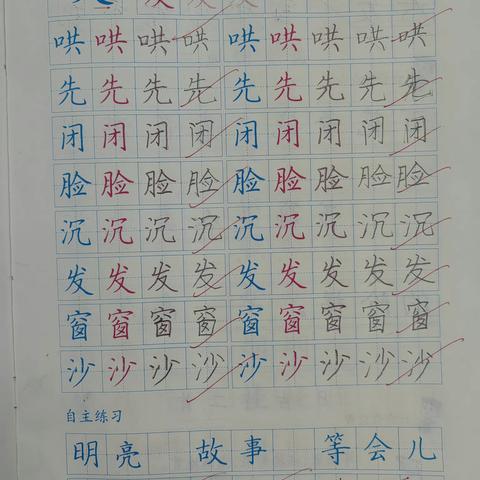 哄哄哄哄哄哄哄哄哄
先先先先先先先先先
闭闭闭闭闭闭闭闭闭
脸脸脸脸脸脸脸脸脸
沉沉沉沉沉沉沉沉沉
发发发发发发发发发
窗窗窗窗窗窗窗窗窗
沙沙沙沙沙沙沙沙沙
自主练习
明亮 故事 等会儿